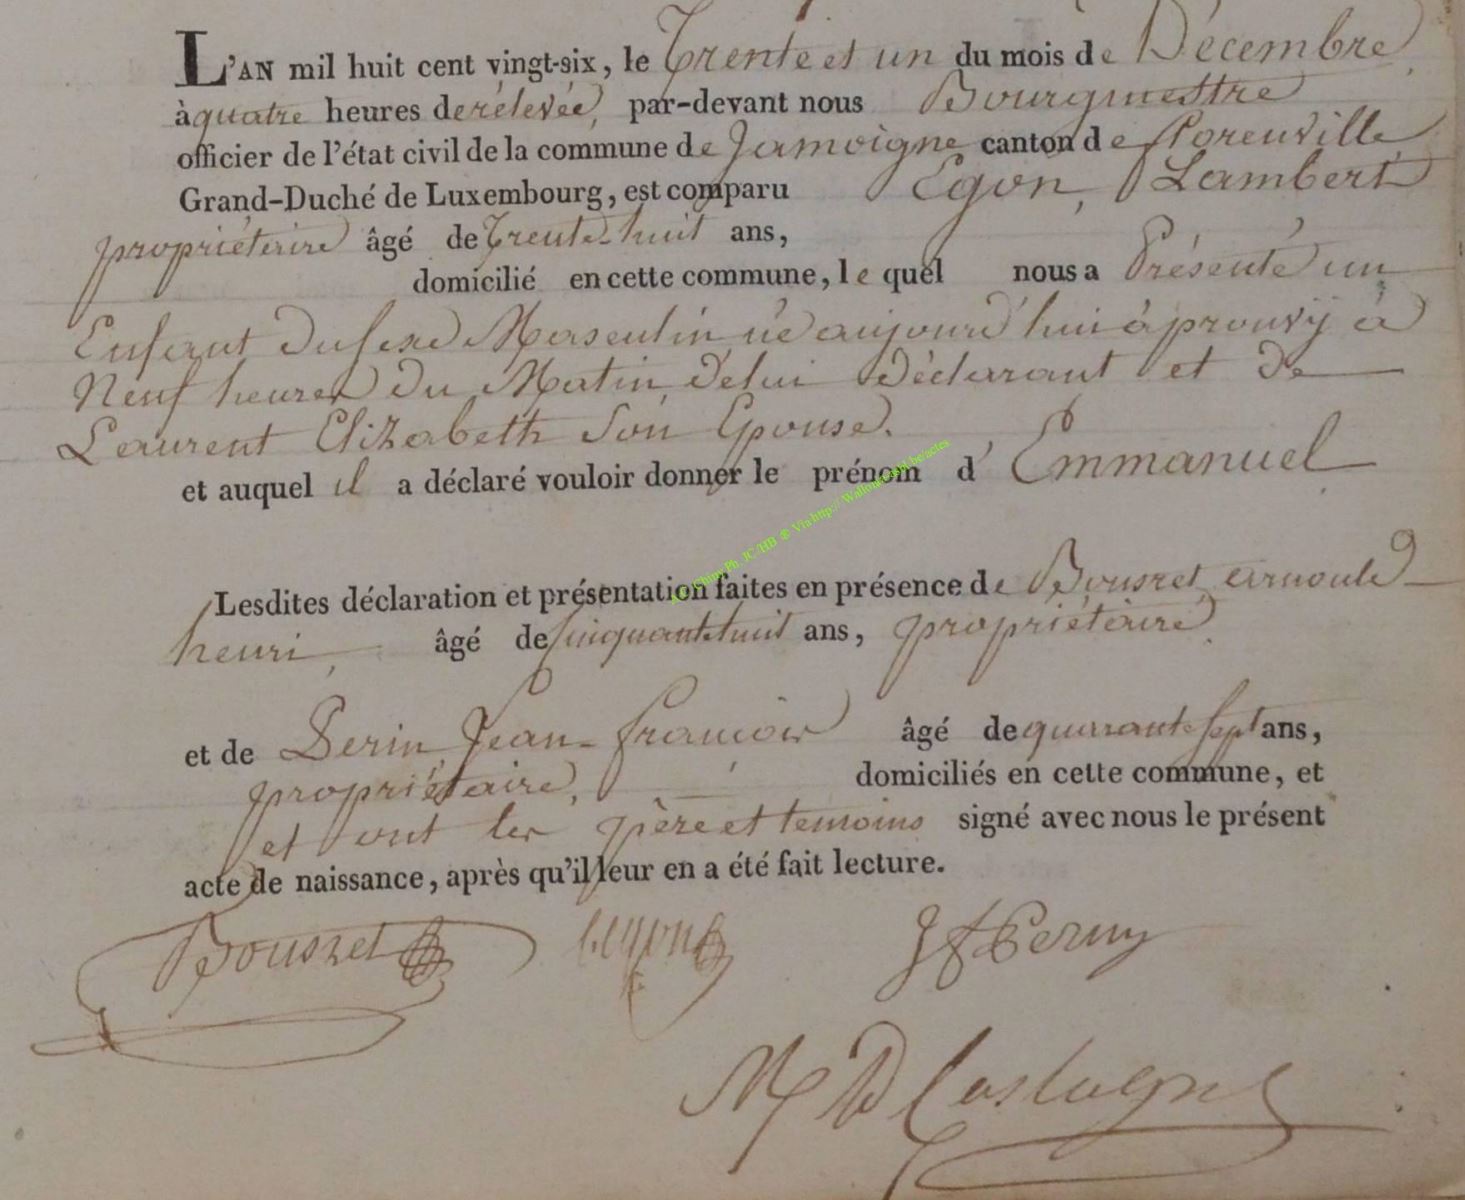 L'AN mil huit cent vingt-six, le Trente et un du mois de Décembre
à quatre heures de rélevée, par-devant nous Bourgmesttre
officier de l'état civil de la commune de Jamoigne canton de florenville
Grand-Duché de Luxembourg, est comparu Egon, Lambert
propriétaire âgé de Trente-huit ans,
domicilié en cette commune, le quel nous a Présenté un
Enfant du sexe Masculin né aujourd'hui à prouvÿ à
Neuf heures du Matin, de lui Déclarant et de
Laurent Elizabeth Son Epouse.
et auquel il a déclaré vouloir donner le prénom d' Emmanuel
Lesdites déclaration et présentation faites en présence de Bousret arnould
henri, âgé de cinquante huit ans, propriétaire
et de Perin Jean-francois âgé de quarante sept ans,
propriétaire, domiciliés en cette commune, et
et ont les père et temoins signé avec nous le présent
acte de naissance, après qu'il leur en a été fait lecture.
Bousret Legon J f Perin
Chiny Ph. JC/HB ® Via http:// be/actes